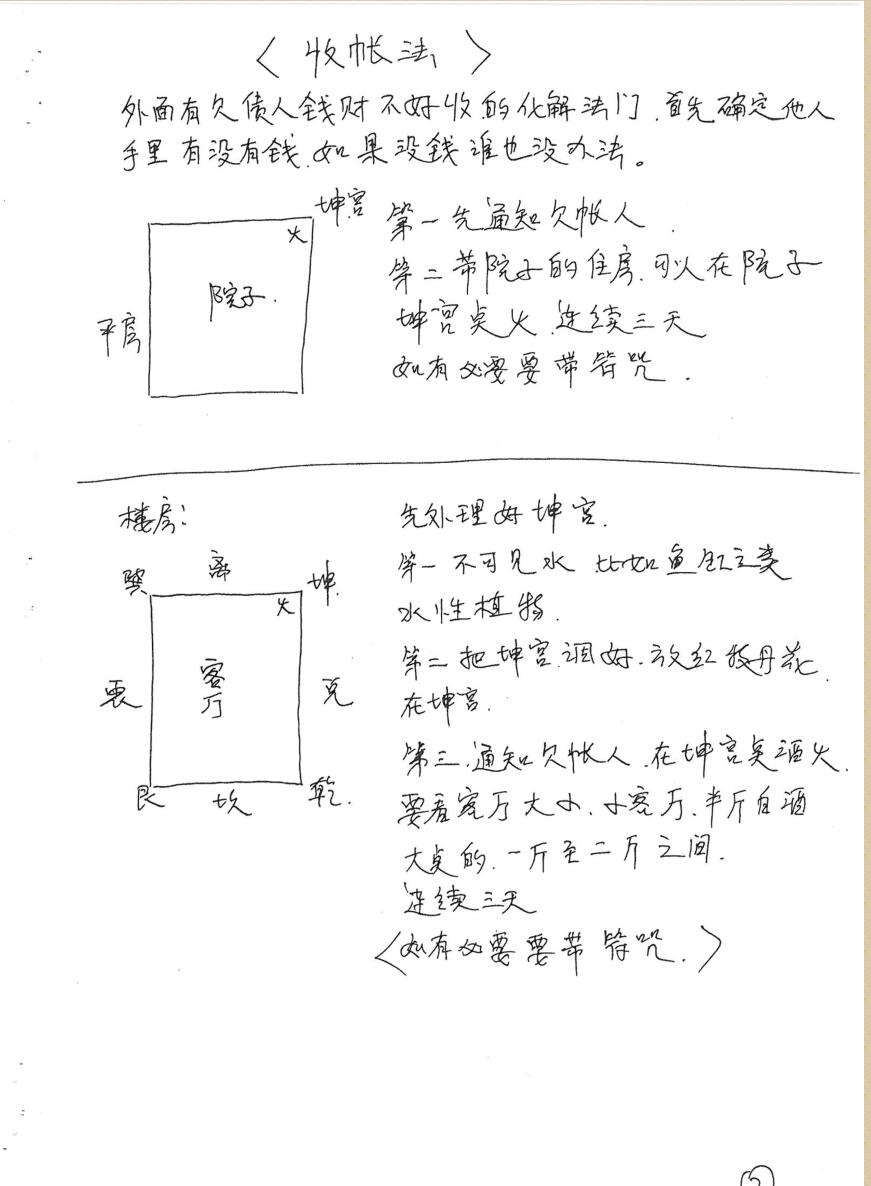 〈收帐法〉
外面有欠债人钱财不好收的化解法门.首先确定他人
手里有没有钱.如果没钱谁也没办法。
坤宫
火
院子.
平房
第一先通知欠帐人.
第二带院子的住房.可以在院子
坤宫点火.连续三天
如有必要要带符咒.
楼房:
巽 离 坤.
火
震 客厅 兑
艮 坎 乾.
先处理好坤宫.
第一不可见水.比如鱼缸之类
水性植物.
第二把坤宫调好.放红牡丹花.
在坤宫.
第三.通知欠帐人.在坤宫点酒火.
要看客厅大小.小客厅.半斤白酒
大点的.一斤至二斤之间.
连续三天
〈如有必要要带符咒.〉